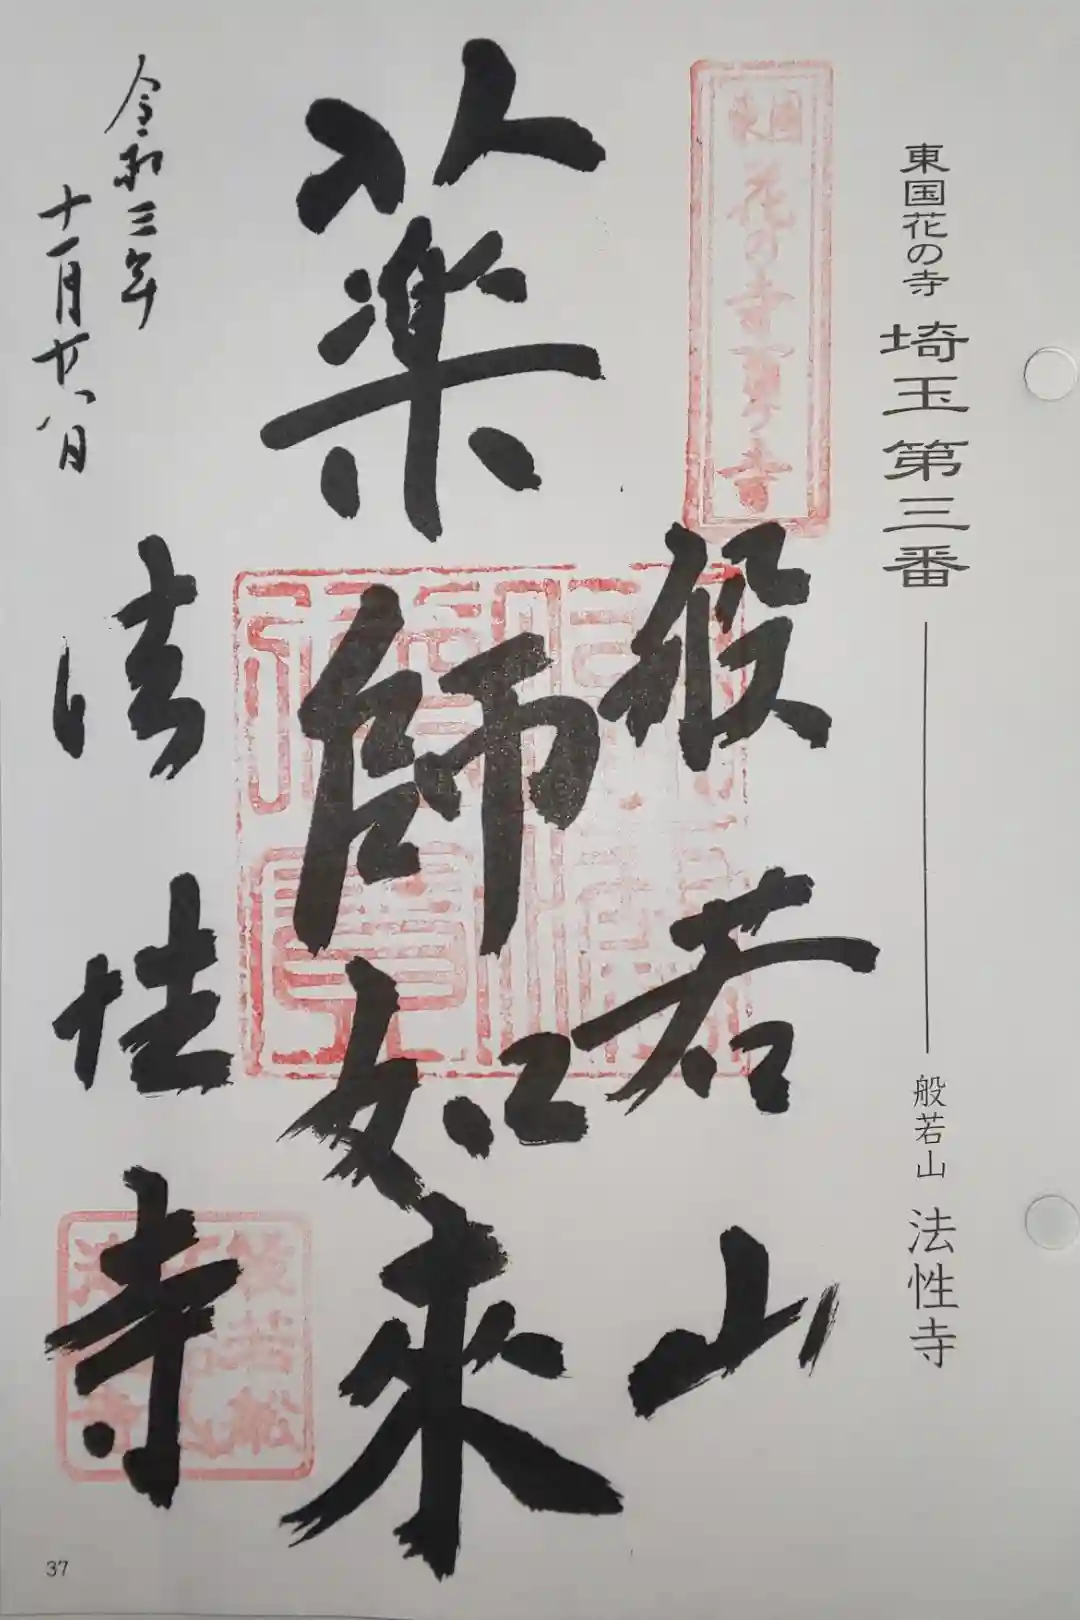 東国花の寺 埼玉第三番 般若山 法性寺
東国花の寺百ヶ寺
般若山
薬師如来
令和三年
十一月廿八日
法性寺
37